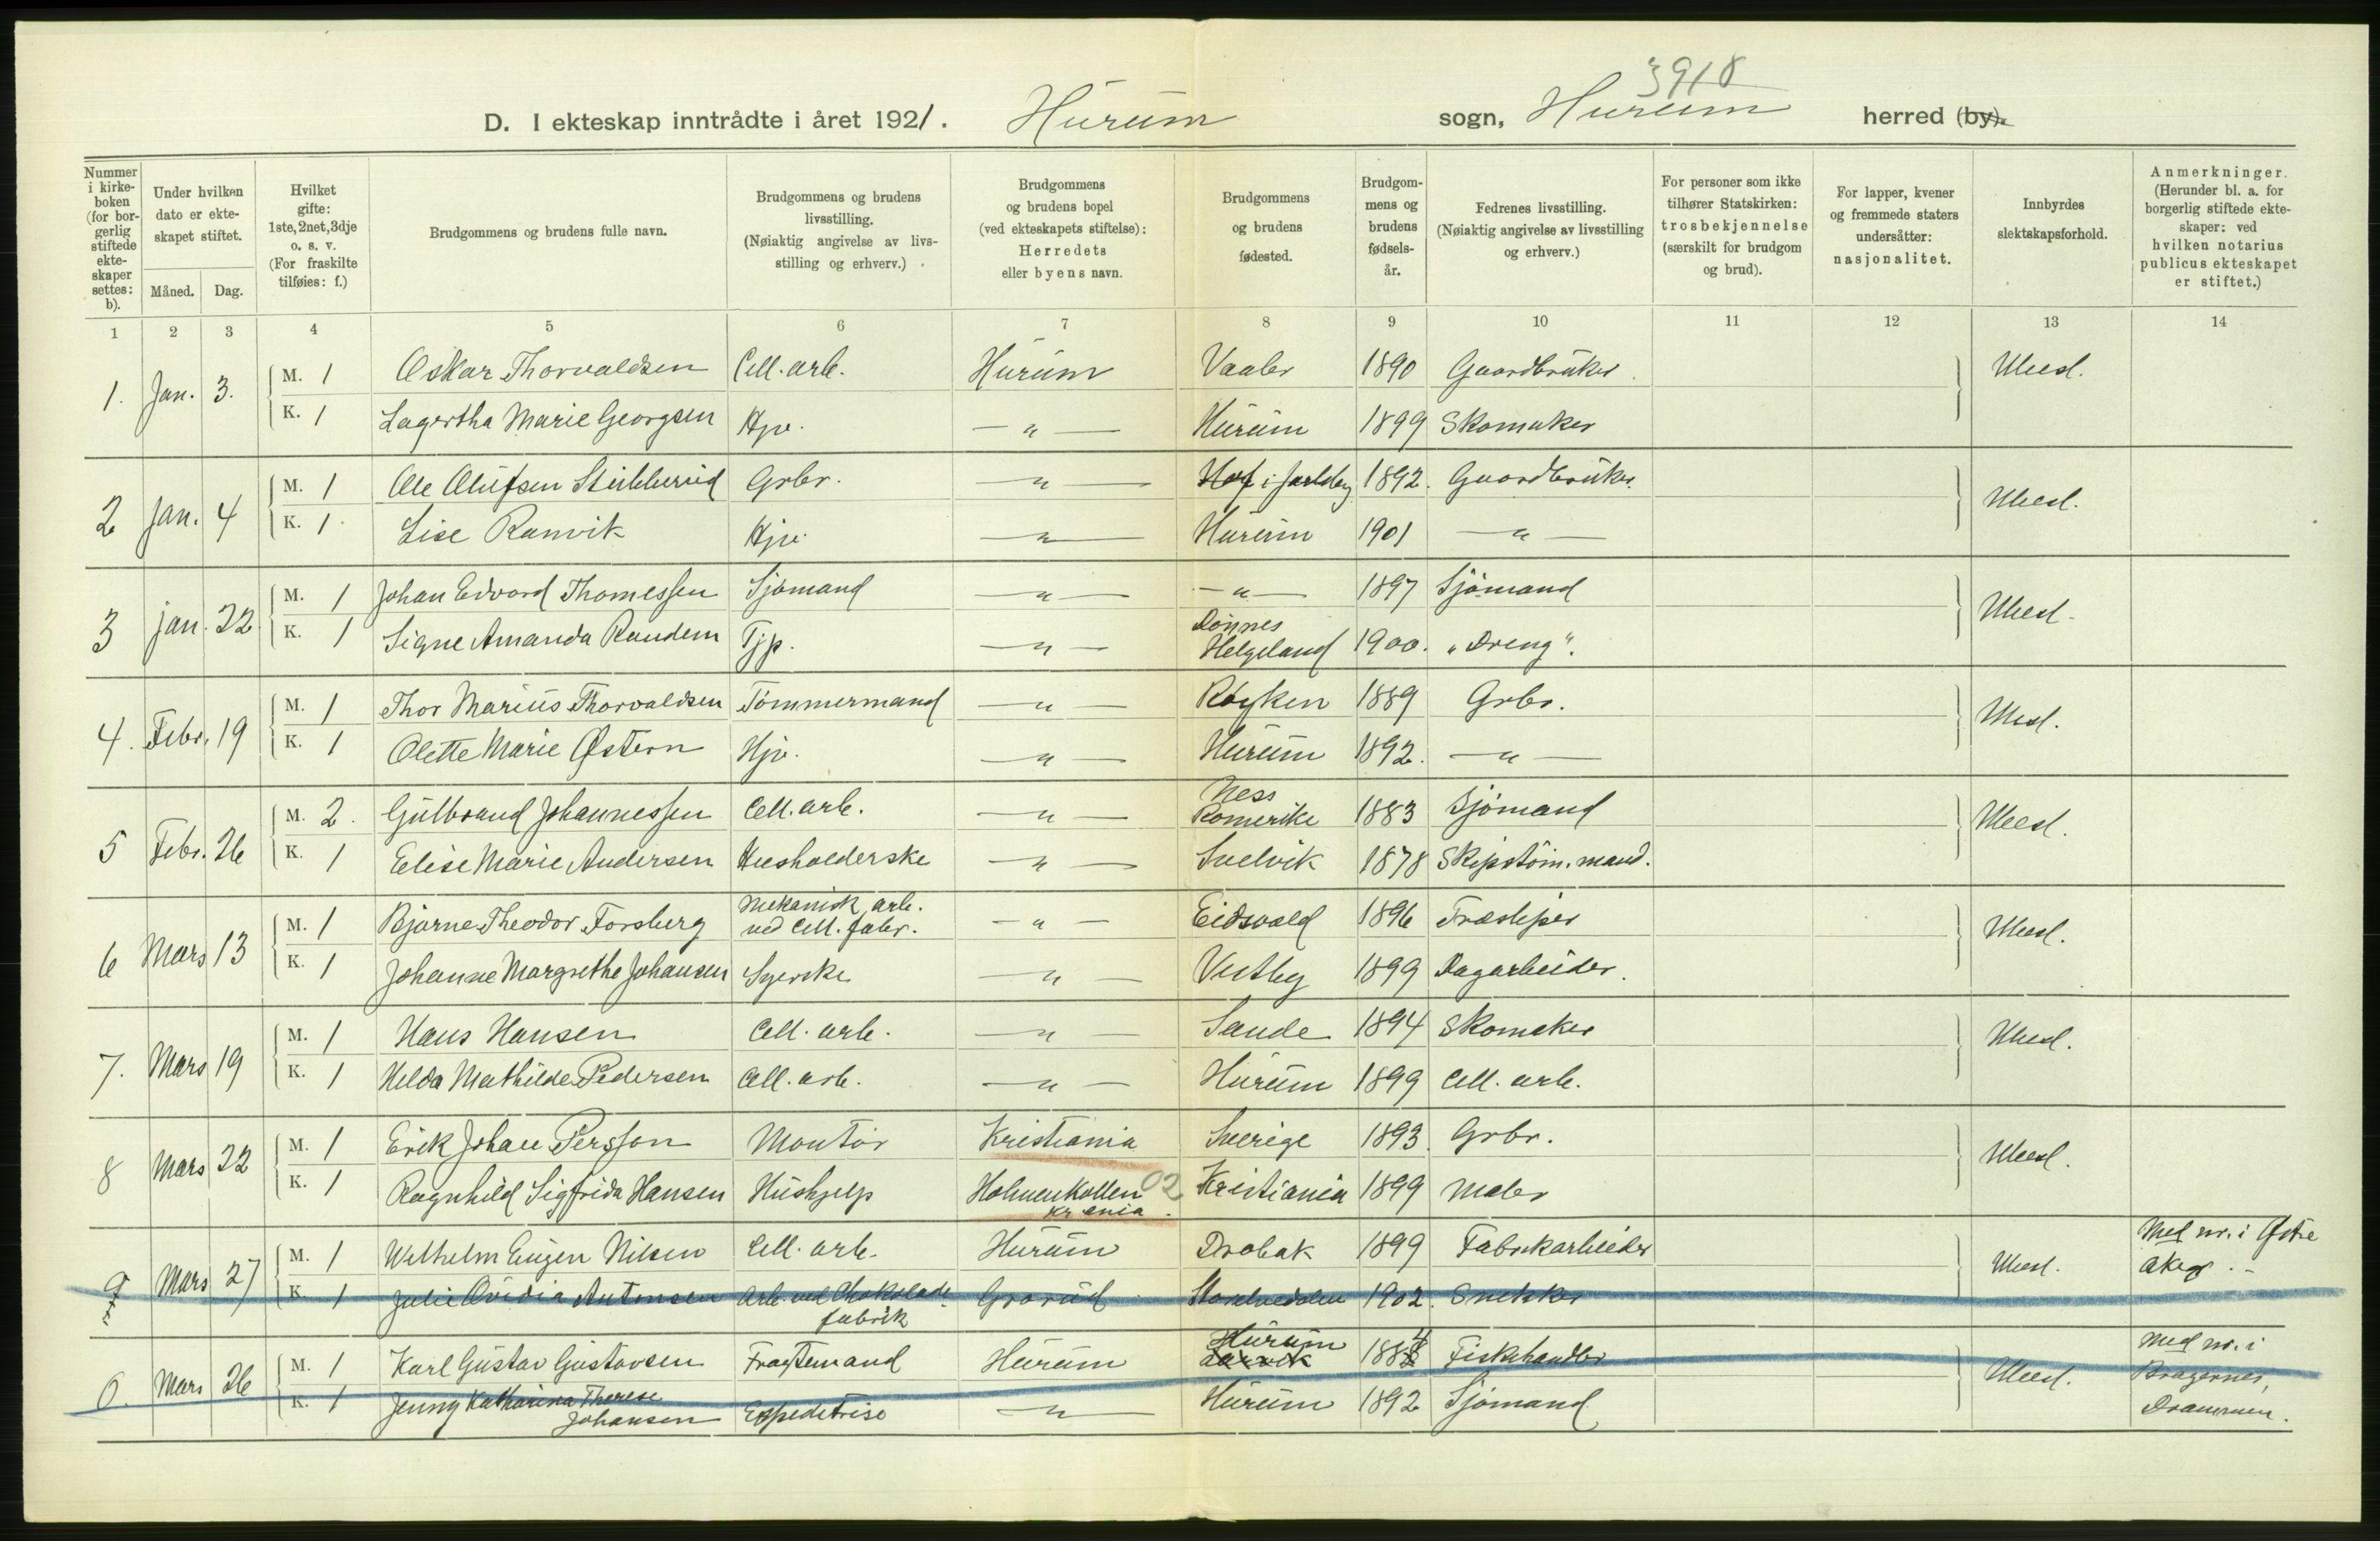 3918
D. I ekteskap inntrådte i året 1921. Hurum sogn, Hurum herred (by).
Nummer i kirkeboken (for borgerlig stiftede ekteskaper settes: b).
Under hvilken dato er ekteskapet stiftet.
Måned. Dag.
Hvilket gifte: 1ste, 2net, 3dje o. s. v. (For fraskilte tilføies: f.)
Brudgommens og brudens fulle navn.
Brudgommens og brudens livsstilling. (Nøiaktig angivelse av livsstilling og erhverv.)
Brudgommens og brudens bopel (ved ekteskapets stiftelse): Herredets eller byens navn.
Brudgommens og brudens fødested.
Brudgommens og brudens fødselsår.
Fedrenes livsstilling. (Nøiaktig angivelse av livsstilling og erhverv.)
For personer som ikke tilhører Statskirken: trosbekjennelse (særskilt for brudgom og brud).
For lapper, kvener og fremmede staters undersåtter: nasjonalitet.
Innbyrdes slektskapsforhold.
Anmerkninger. (Herunder bl. a. for borgerlig stiftede ekteskaper: ved hvilken notarius publicus ekteskapet er stiftet.)
1 2 3 4 5 6 7 8 9 10 11 12 13 14
1. Jan. 3. M. 1 Oskar Thorvaldsen Cell. arb. Hurum Vaaler 1890 Gaardbruker Ubesl.
K. 1 Lagertha Marie Georgsen Hjv. — " — Hurum 1899 Skomaker
2 Jan. 4 M. 1 Ole Olufsen Stubberud Grbr. — " — Hof i Jarlsberg 1892. Gaardbruker. Ubesl.
K. 1 Lise Ramvik Hjv. — " — Hurum 1901 — " —
3 Jan. 22 M. 1 Johan Edvard Thomessen Sjømand — " — — " — 1897 Sjømand Ubesl.
K. 1 Signe Amanda Randem Tjp. — " — Dønnes Helgeland 1900. "Dreng".
4. Febr. 19 M. 1 Thor Marius Thorvaldsen Tømmermand — " — Røyken 1889 Grbr. Ubesl.
K. 1 Olette Marie Østern Hjv. — " — Hurum 1892. — " —
5 Febr. 26 M. 2. Gulbrand Johannessen Cell. arb. — " — Ness Romerike 1883 Sjømand Ubesl.
K. 1 Elise Marie Andersen Husholderske — " — Svelvik 1878 Skipstøm. mand.
6 Mars 13 M. 1 Bjarne Theodor Forsberg Mekanisk arb. ved Cell. fabr. — " — Eidsvold 1896 Træsliper Ubesl.
K. 1 Johanne Margrethe Johansen Syerske — " — Vestby 1899 Dagarbeider.
7. Mars 19 M. 1 Hans Hansen Cell. arb. — " — Sande 1894 Skomaker Ubesl.
K. 1 Helda Mathilde Pedersen Cell. arb. — " — Hurum 1899 Cell. arb.
8 Mars 22 M. 1 Erik Johan Persson Montør Kristiania Sverige 1893. Grbr. Ubesl.
K. 1 Ragnhild Sigfrida Hansen Hushjelp Holmenkollen Kr.ania. 02 Kristiania 1899 Maler
9 Mars 27 M. 1 Wilhelm Eugen Nilsen Cell. arb. Hurum Drøbak 1899 Fabrikarbeider Ubesl. Med nr. i Østre Aker.-
K. 1 Julie Ovidia Antonsen Arb. ved Chokoladefabrik Grorud 1902. Snekker
0. Mars 26 M. 1 Karl Gustav Gustavsen Fragtemand Hurum Hurum Larvik 1884 Fiskehandler Ubesl. Med nr. i Bragernes, Drammen.
K. 1 Jenny Katharina Therese Johansen Expeditrise — " — Hurum 1892 Sjømand